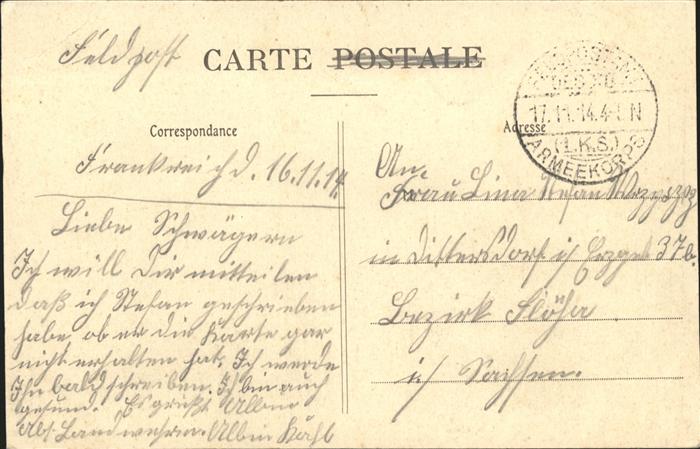 Feldpost
CARTE POSTALE
17.11.14.4-5 N
(L.K.S.)
ARMEEKORPS
Correspondance
Adresse
Frankreich d. 16.11.14.
Liebe Schwägern
Ich will Dir mitteilen
daß ich Stefan geschrieben
habe, ob er die Karte gar
nicht erhalten hat. Ich werde
Ihn bald schreiben. Ich bin auch
gesund. Es grüßt
Abs. Landwehrm. Albin
An
Frau Lina Stefan
in Dittersdorf i/ Erzgeb 37b.
Bezirk Flöha
i/ Sachsen.